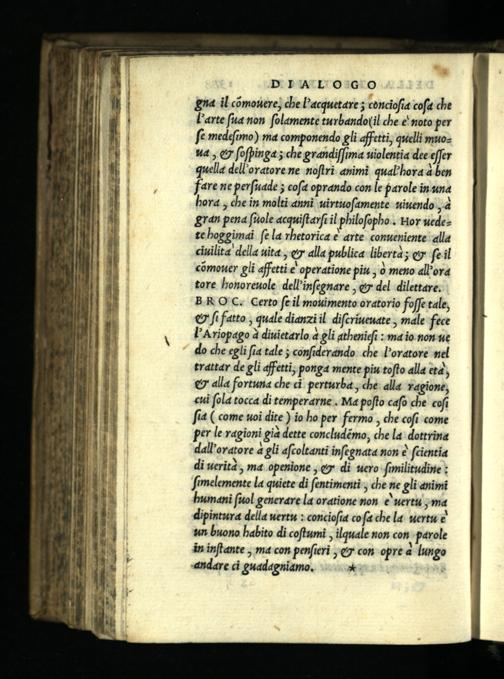 DIALOGO
gna il cõmouere, che l'acquetare; conciosia cosa che
l'arte sua non solamente turbando(il che e' noto per
se medesimo) ma componendo gli affetti, quelli muo=
ua, & sospinga; che grandissima uiolentia dee esser
quella dell'oratore ne nostri animi qual'hora à ben
fare ne persuade; cosa oprando con le parole in una
hora, che in molti anni uirtuosamente uiuendo, à
gran pena suole acquistarsi il philosopho. Hor uede=
te hoggimai se la rhetorica è arte conueniente alla
ciuilità della uita, & alla publica libertà; & se il
cõmouer gli affetti è operatione piu, ò meno all'ora
tore honoreuole dell'insegnare, & del dilettare.
BROC. Certo se il mouimento oratorio fosse tale,
& si fatto, quale dianzi il discriueuate, male fece
l'Ariopago à diuietarlo à gli atheniesi: ma io non ue
do che egli sia tale; considerando che l'oratore nel
trattar de gli affetti, ponga mente piu tosto alla età,
& alla fortuna che ci perturba, che alla ragione,
cui sola tocca di temperarne. Ma posto caso che cosi
sia (come uoi dite) io ho per fermo, che cosi come
per le ragioni già dette concludẽmo, che la dottrina
dall'oratore à gli ascoltanti insegnata non è scientia
di uerità, ma openione, & di uero similitudine:
similemente la quiete di sentimenti, che ne gli animi
humani suol generare la oratione non è uertu, ma
dipintura della uertu: conciosia cosa che la uertu è
un buono habito di costumi, ilquale non con parole
in instante, ma con pensieri, & con opre à lungo
andare ci guadagniamo. *